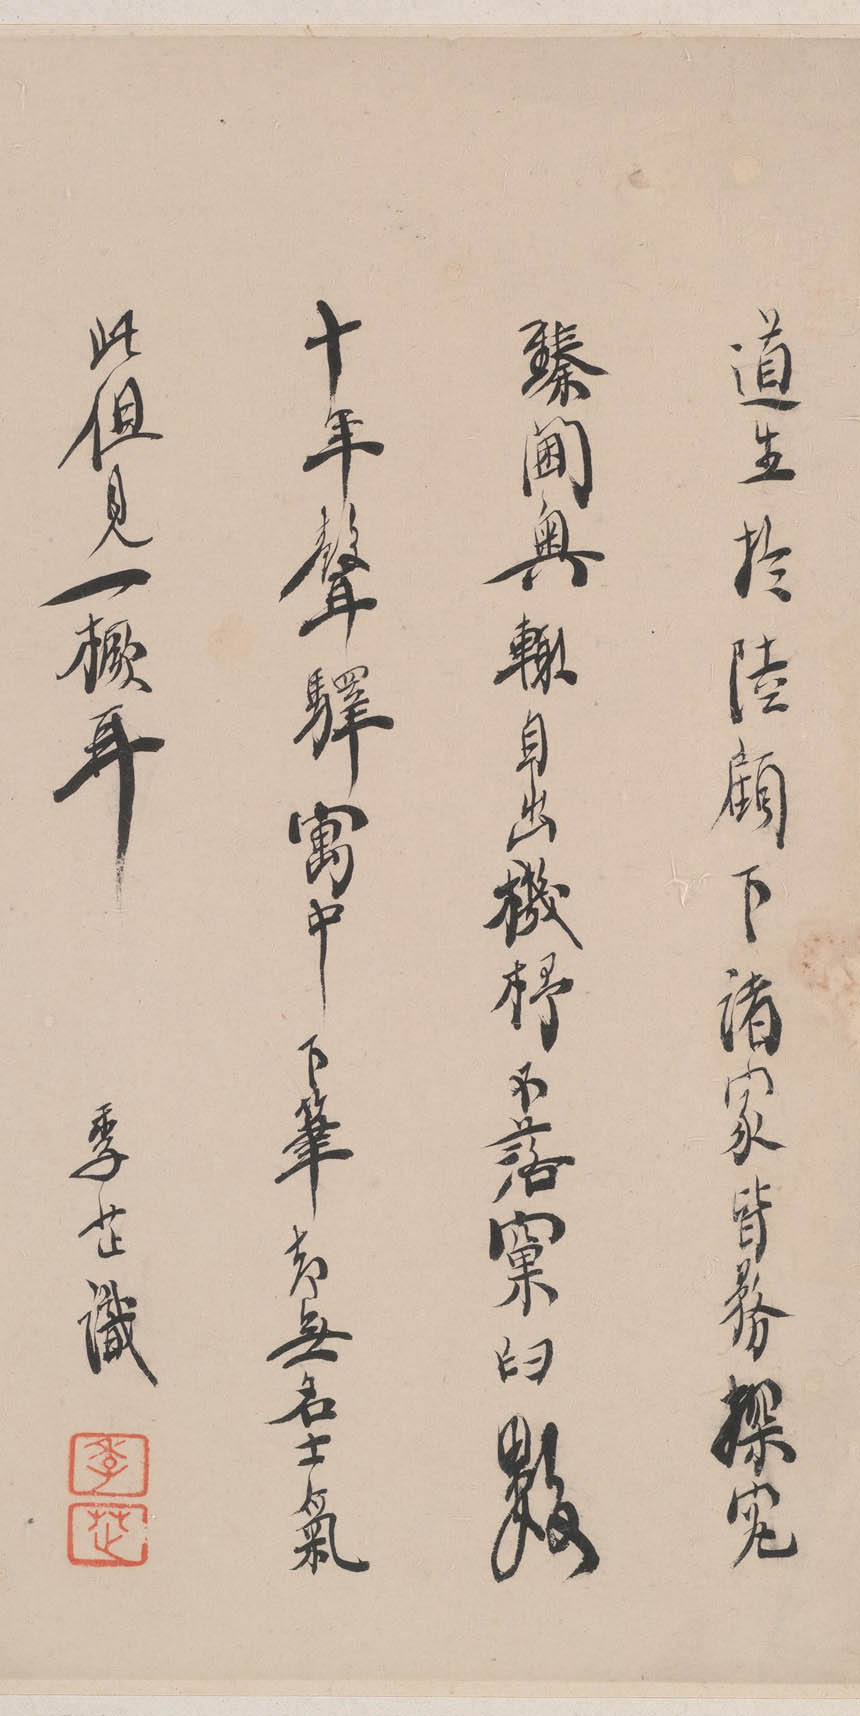 道生於陸顧下諸家皆務探究
臻閫奧輒自出機杼不落窠臼數
十年聲驛寓中下筆都無名士氣
此但見一橛耳
李芷識
李
芷